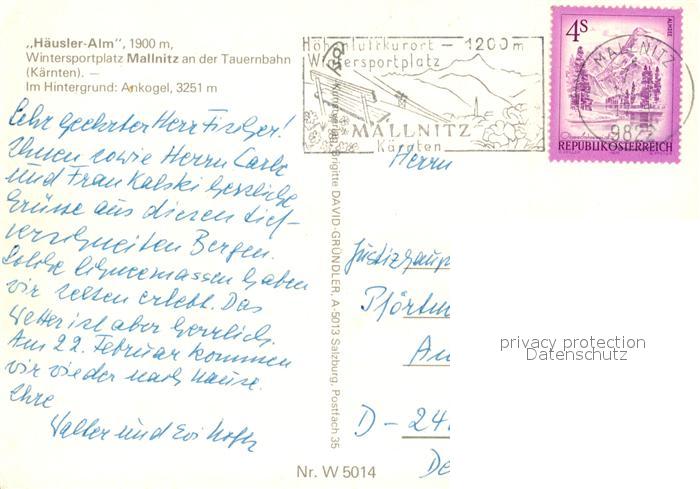 „Häusler-Alm“, 1900 m,
Wintersportplatz Mallnitz an der Tauernbahn
(Kärnten). —
Im Hintergrund: Ankogel, 3251 m
Sehr geehrter Herr Fischer!
Ihnen sowie Herrn
und Frau Kalski herzliche
Grüsse aus diesen tief-
verschneiten Bergen.
Solche Schneemassen haben
wir selten erlebt. Das
Wetter ist aber herrlich.
Am 22. Februar kommen
wir wieder nach Hause.
Ihre
Walter und Evi
Höhenluftkurort — 1200 m
Wintersportplatz
MALLNITZ
Kärnten
MALLNITZ
982
4S
ALMSEE
REPUBLIK ÖSTERREICH
Brigitte DAVID-GRÜNDLER, A-5013 Salzburg, Postfach 35
Herrn
Justizhaup
Pförtn
An
D - 24
De
privacy protection
Datenschutz
Nr. W 5014